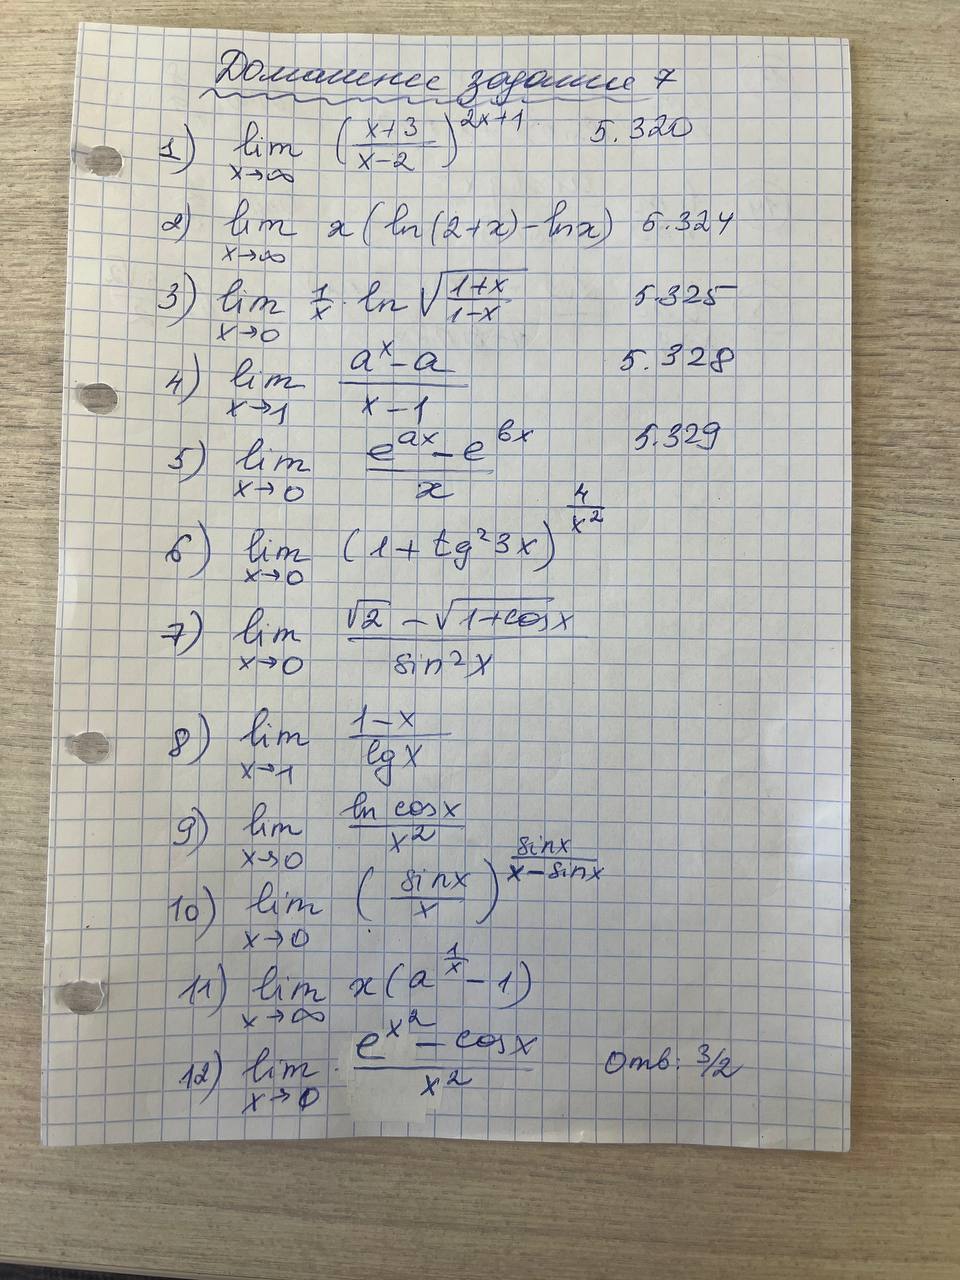 Домашнее задание 7
1) lim x→∞ ((x+3)/(x-2))^(2x+1) 5.320
2) lim x→∞ x(ln(2+x)-lnx) 5.324
3) lim x→0 1/x · ln √((1+x)/(1-x)) 5.325
4) lim x→1 (a^x-a)/(x-1) 5.328
5) lim x→0 (e^(ax)-e^(bx))/x 5.329
6) lim x→0 (1+tg²3x)^(4/x²)
7) lim x→0 (√2-√(1+cosx))/(sin²x)
8) lim x→1 (1-x)/(lgx)
9) lim x→0 (ln cosx)/(x²)
10) lim x→0 ((sinx)/x)^(sinx/(x-sinx))
11) lim x→∞ x(a^(1/x)-1)
12) lim x→0 (e^(x²)-cosx)/(x²) Отв: 3/2